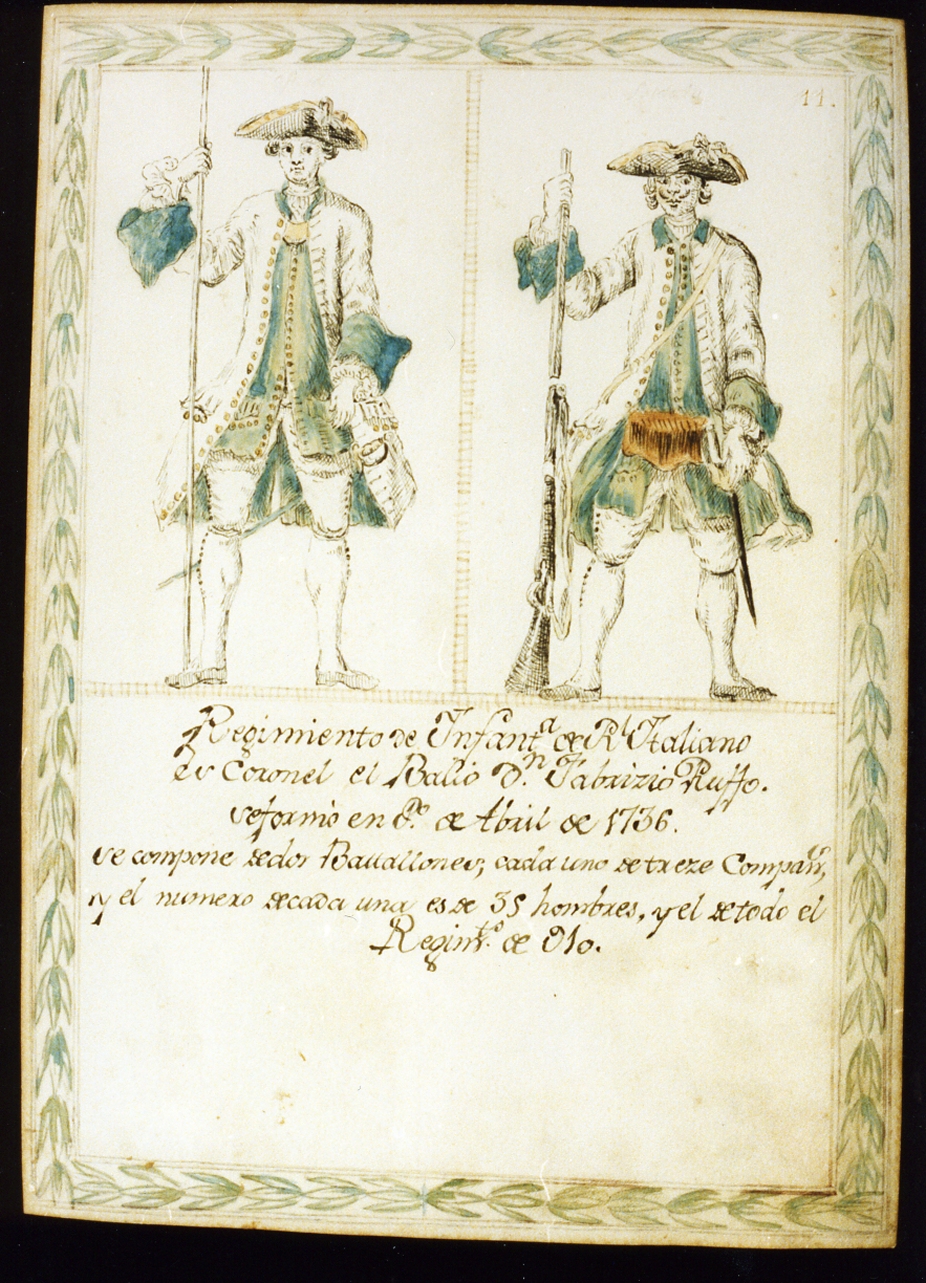 11.
Regimiento de Infant.ª de R.l Italiano
es Coronel el Balio D.n Fabrizio Ruffo.
se formò en P.ro de Abril de 1736.
se compone de dos Battallones, cada uno de treze Compañ.s,
y el numero de cada una es de 35 hombres, y el de todo el
Regim.to de 910.